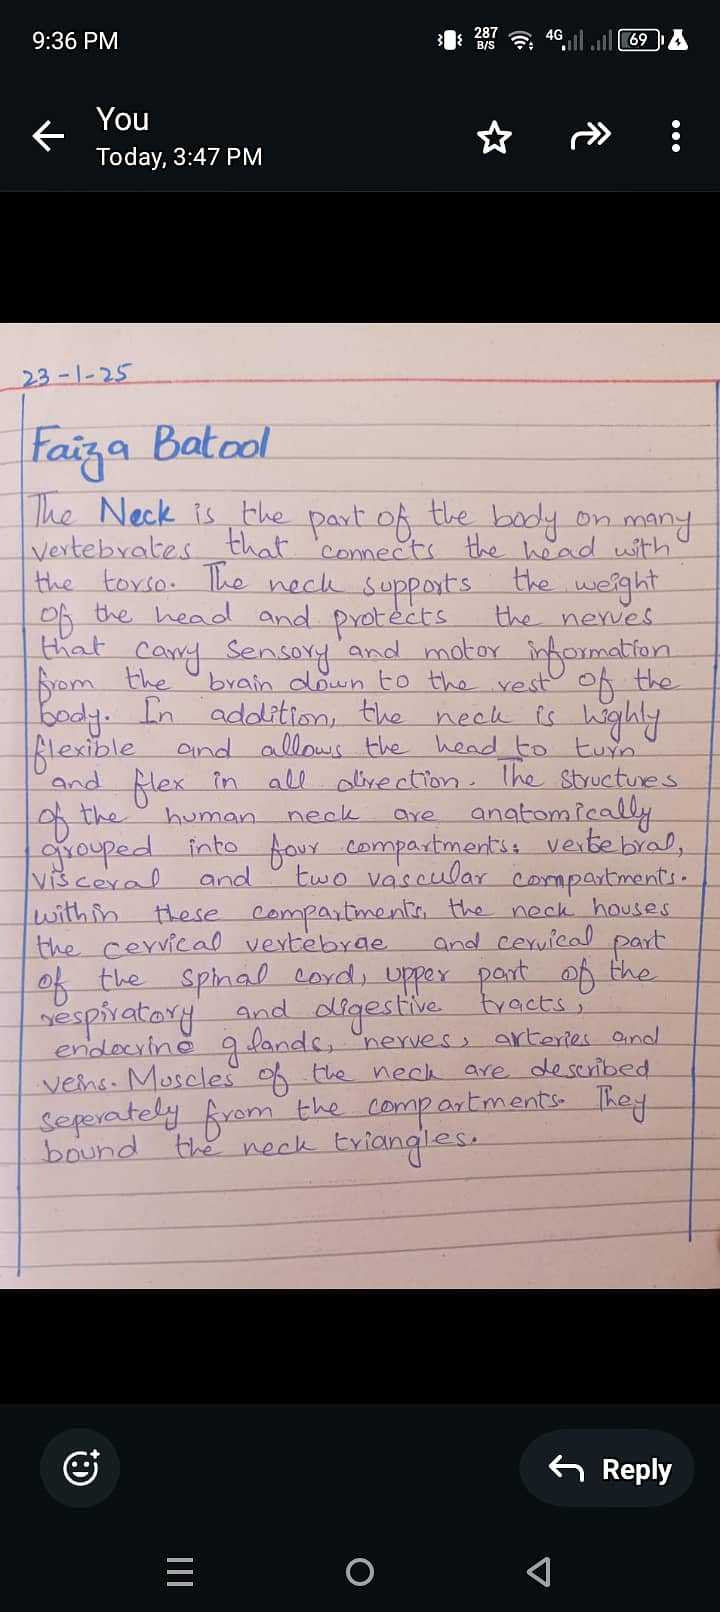 9:36 PM 287 B/S 4G 69
You
Today, 3:47 PM
23-1-25
Faiza Batool
The Neck is the part of the body on many
vertebrates that connects the head with
the torso. The neck supports the weight
of the head and protects the nerves
that carry sensory and motor information
from the brain down to the rest of the
body. In addition, the neck is highly
flexible and allows the head to turn
and flex in all direction. The structures
of the human neck are anatomically
grouped into four compartments: vertebral,
visceral and two vascular compartments.
within these compartments, the neck houses
the cervical vertebrae and cervical part
of the spinal cord, upper part of the
respiratory and digestive tracts,
endocrine glands, nerves, arteries and
veins. Muscles of the neck are described
seperately from the compartments. They
bound the neck triangles.
Reply